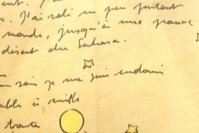 J'ai volé un peu partout
monde, jusqu'à une panne
désert du Sahara.
soir je me suis endormi
sable à mille
toute